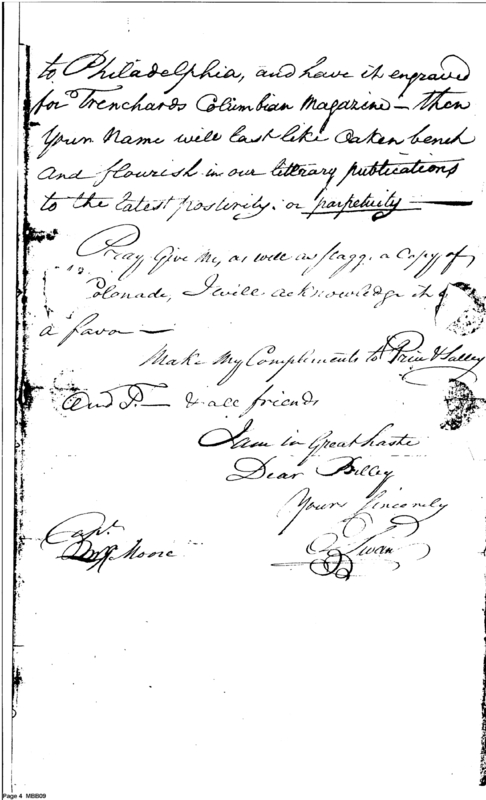 to Philadelphia, and have it engraved
for Trenchards Columbian Magazine — then
Your Name will last like Oaken bench
and flourish in our litterary publications
to the latest posterity. or parpetuity —
Pray Give Me, as well as Stagg. a Copy of
Colonade, I will acknowledge it
a favor —
Make My Compliments to
And T— & all friends
I am in Great haste
Dear Billey
Yours Sincerely
C Swan
Capt.
Moore
Page 4 MBB09